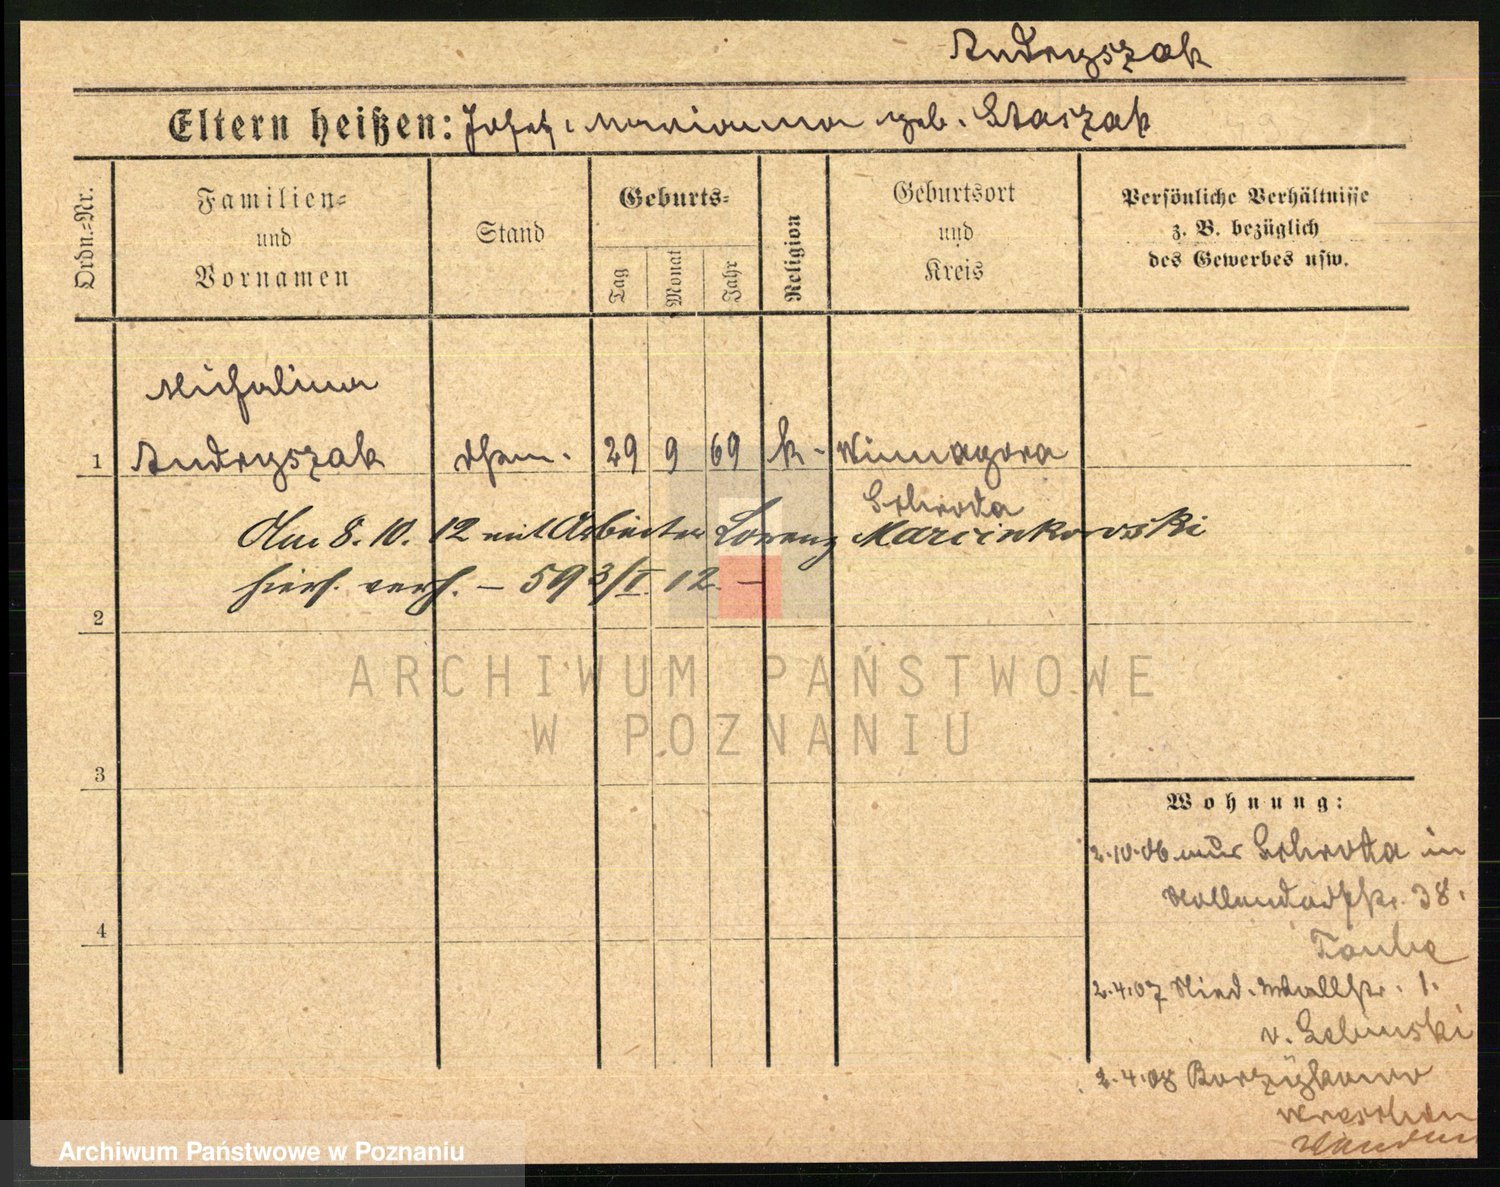 Andryszak
Eltern heißen: Josef, Marianna geb. Staszak
Ordn.-Nr.
Familien-
und
Vornamen
Stand
Geburts-
Tag
Monat
Jahr
Religion
Geburtsort
und
Kreis
Persönliche Verhältnisse
z. B. bezüglich
des Gewerbes usw.
Michalina
1 Andryszak 29 9 69 k. Winnagora
Schroda
Am 8. 10. 12 mit Arbeiter Lorenz Marcinkowski
hiers. verh. – 593/I. 12. –
2
3
4
Wohnung:
2.10.06 aus Schroda in
38.
2.4.07 Wallstr. 1.
v.
2.4.08
Wreschen
ARCHIWUM PAŃSTWOWE
W POZNANIU
Archiwum Państwowe w Poznaniu